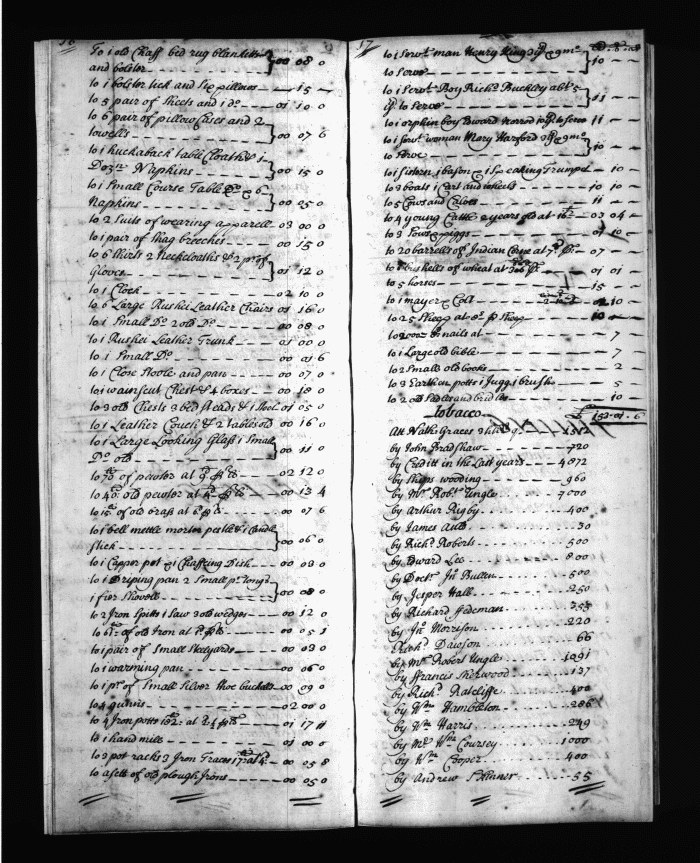 16
To 1 old Chaff bed rug blanketts
and bolster 00 08 0
to 1 bolster tick and Six pillows — 15 —
to 5 pair of Sheets and 1 do 01 10 0
to 6 pair of pillow Cases and 2
towells 00 07 6
to 1 huckaback table Cloath & 1
Dozn Napkins 00 15 0
to 1 Small Course Table Do & 6
Napkins 00 05 0
to 2 Suits of wearing apparell 03 00 0
to 1 pair of Shag breeches 00 15 0
to 6 Shirts 2 Neckcloaths & 2 pr of
Gloves 01 12 0
to 1 Clock 02 10 0
to 6 Large Rushei Leather Chairs 01 16 0
to 1 Small Do 2 old Do 00 08 0
to 1 Rushei Leather Trunk 01 00 0
to 1 Small Do 00 01 6
to 1 Close Stoole and pan 00 07 0
to 1 wainscut Chest & 4 boxes 00 18 0
to 3 old Chests 3 bedsteads & 1 Stool 01 05 0
to 1 Leather Couch & 2 tables old 00 16 0
to 1 Large Looking Glass 1 Small
Do old 00 11 0
to of pewter at 02 12 0
to 40 old pewter at 00 13 4
to of old brass at 00 07 6
to 1 bell mettle morter pestle & Candle
stick 00 06 0
to 1 Copper pot & 1 Chaffeing Dish 00 03 0
to 1 Driping pan 2 Small pr tongs
1 fier Shovele 00 08 0
to 2 Iron Spitts 1 Saw 3 old wedges 00 12 0
to of old Iron at 00 05 1
to 1 pair of Small Steelyards 00 03 0
to 1 warming pan 00 06 0
to 1 pr of Small Silver Shoe buckels 00 09 0
to 4 gunns 02 00 0
to 4 Iron potts at 01 17
to 1 hand mill 01 00 0
to 3 pot racks 3 Iron Traces at 00 05 8
to a sett of old plough Irons 00 05 0
17
to 1 Servt man Henry King 3 yr 9 mo
to Serve 10 — —
to 1 Servt Boy Richd Buckley abt 5
yr to Serve 11 — —
to 1 orphin boy Edward to Serve 11 — —
to 1 Servt woman Mary Harford 9 mo
to Serve 10 — —
to 1 Sistern 1 bason & 1 Speaking Trumpet — 10 —
to 3 boats 1 Cart and wheels 10 10 —
to 5 Cows and Calves 11 — —
to 4 young Cattle 2 years old at 16s 03 04 —
to 3 Sows & piggs 10 —
to 20 barrells of Indian Corne at 7s pr 07 — —
to bushells of wheat at pr 01 01
to 5 horses 15 — —
to 1 mayer & Colt 10 —
to 25 Sheep at 8s p Sheep 10 — —
to nails at — 7 —
to 1 Large old bible — 7 —
to 2 Small old books — 2 —
to 3 Earthen potts 1 Jugg 1 brush — 5 —
to 2 old Sadles and bridles — 10 —
£ 152 - 01 - 6
Tobacco
Att Nathl Graces
by John Bradshaw 720
by Creditt in the Last years 4872
by Ships wooding 960
by Mr Robt Ungle 7000
by Arthur Rigby 400
by James Auld 30
by Richd Roberts 500
by Edward Leo 800
by Doctr Jno Bullen 500
by Jesper Hall 250
by Richard Fedeman
by Jno Morrison 220
Richd Dawson 66
by Mr Robert Ungle 1091
by ffrancis Sherwood 127
by Richd Ratcliffe 400
by Wm Hambleton 286
by Wm Harris 249
by Mr Wm Coursey 1000
by Wm Cooper 400
by Andrew Skinner 55